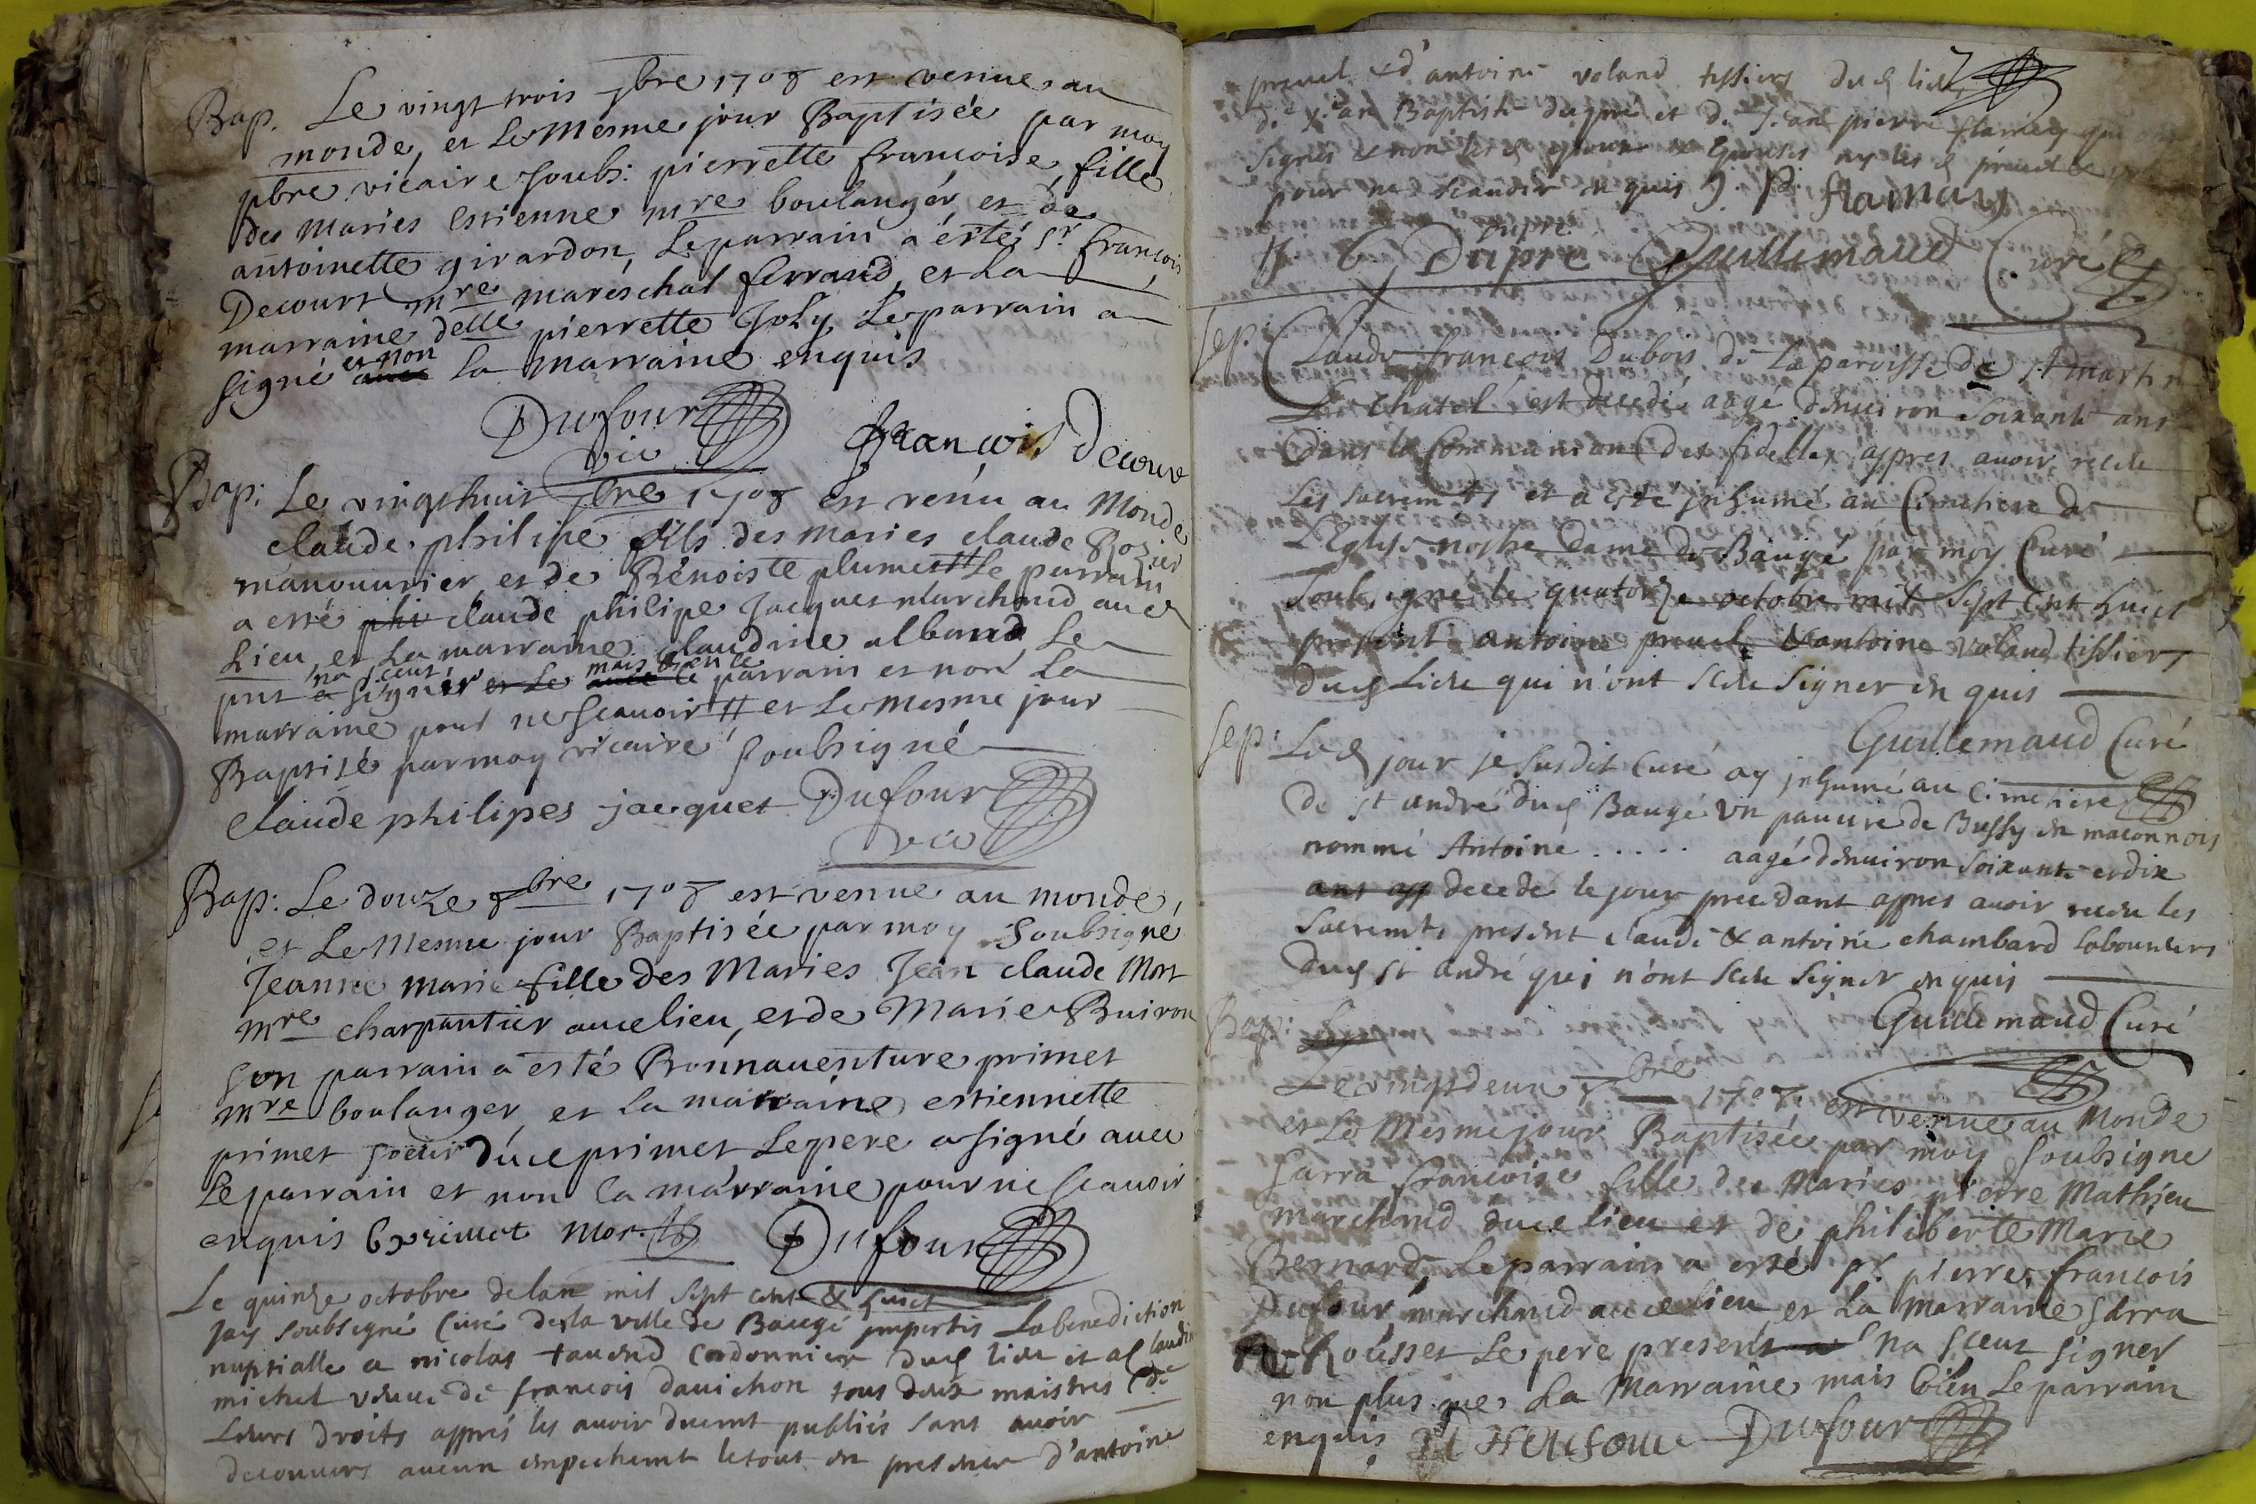 Bap. Le vingt trois 7bre 1708 est venue au
monde, et Le Mesme jour Baptisée par moy
pbre vicaire soubs: pierrette francoise, fille
des Maries Estienne mre boulanger, et de
antoinette girardon, Le parrain a esté sr françois
Decourt mre mareschal ferrand, et La
marraine delle pierrette Joly, Le parrain a
signé et non avec La Marraine enquis
Dufour
vic
françois Decour
Bap: Le vingthuit 7bre 1708 est venu au Monde
claude philipe fils des maries claude Rozier
manouurier, et de Bénoiste plumet # Le parrain
a esté phi claude philipe Jacquet Marchand au d
Lieu, et La marraine claudine alband, Le
pnt na sceut a signér et Le mais bien le avec le parrain et non La
marraine pour ne scauoir # et Le Mesme jour
Baptisé par moy vicaire soubsigné
Claude philipes jacquet Dufour
vic
Bap: Le douze 8bre 1708 est venue au monde,
et Le Mesme jour Baptisée par moy Soubsigné
Jeanne Marie fille des Maries Jean claude Mort
mre charpantier au ce lieu, et de Marie Buiron
son parrain a esté Bonnauenture primet
mre boulanger, et La marraine estiennette
primet soeur du ce primet Le pere a signé auec
Le parrain et non la marraine pour ne scauoir
enquis B primet Mort Dufour
Le quinze octobre de lan mil Sept cent & huict
Jay soubsigné Curé de la ville de Baugé jmpertis La benediction
nuptialle a nicolas tauend Cordonnier dud lieu et a Claudine
michel veuue de francois dauichon tous deux maistres de
Leurs droits apprés les auoir duemt publiés sans auoir
decouuers aucun empechemt le tout en presence d'antoine
preuel & d'antoine voland tissiers dud lieu
de Jean Baptiste dupré et de Jean pierre flamary qui
Signés & non lesd epoux & Epouses ny lesd preuel &
pour ne scauoir enquis J. P. flamary
dupre
J. C. Dupre Guillemaud Curé
Sep. Claude francois Dubois de La paroisse de st martin
Le chatel est decedé aagé denuiron soixante ans
Dans la Communion Des fidelles appres auoir receu
Les sacremts et a este jnhumé au Cimetiere de
L'Eglise nostre dame de Baugé par moy Curé
soubsigné le quatorze octobre mil Sept Cent huict
present antoine preuel & antoine voland tissiers
dud Lieu qui n'ont sceu signer en quis
Guillemaud Curé
Sep: Led jour je susdit curé ay jnhumé au cimetiere
de st andré dud Baugé vn pauure de Bussy en maconnois
nommé Antoine ..... aagé denuiron soixante et dix
ans app decedé le jour precedant appres auoir receu les
sacremts present claude & antoine chambard laboureurs
dud st andré qui n'ont sceu signer enquis
Guillemaud Curé
Bap:
Le vingt deux 8bre 1708 est venue au Monde
et Le Mesme jour Baptisée par moy Soubsigne
Sarra francoise fille des Maries pierre Mathieu
marchand du ce lieu et de philiberte Marie
Bernard, Le parrain a esté sr pierre francois
Dufour marchand au ce lieu, et La Marraine Sarra
Rousset Le pere present a na sceut signer
non plus que La Marraine mais bien Le parrain
enquis Dufour